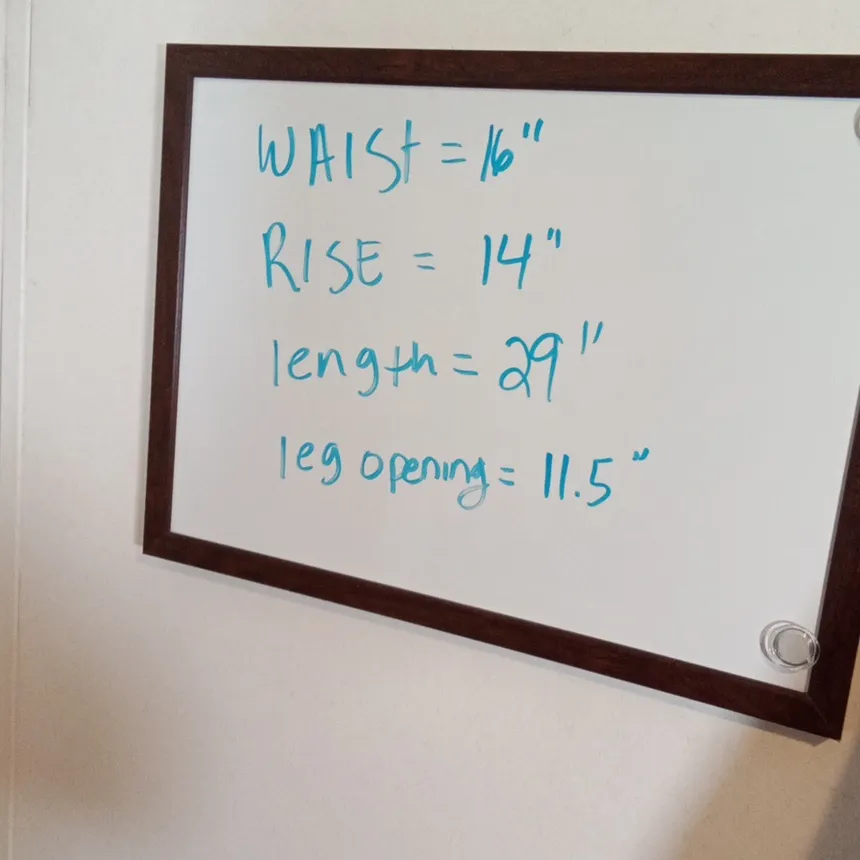 WAIST = 16"
RISE = 14"
length = 29"
leg opening = 11.5"